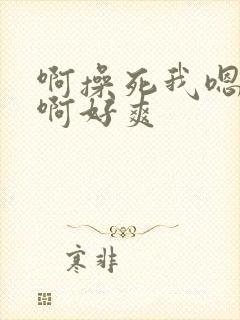 啊操死我嗯
啊好爽
寒非